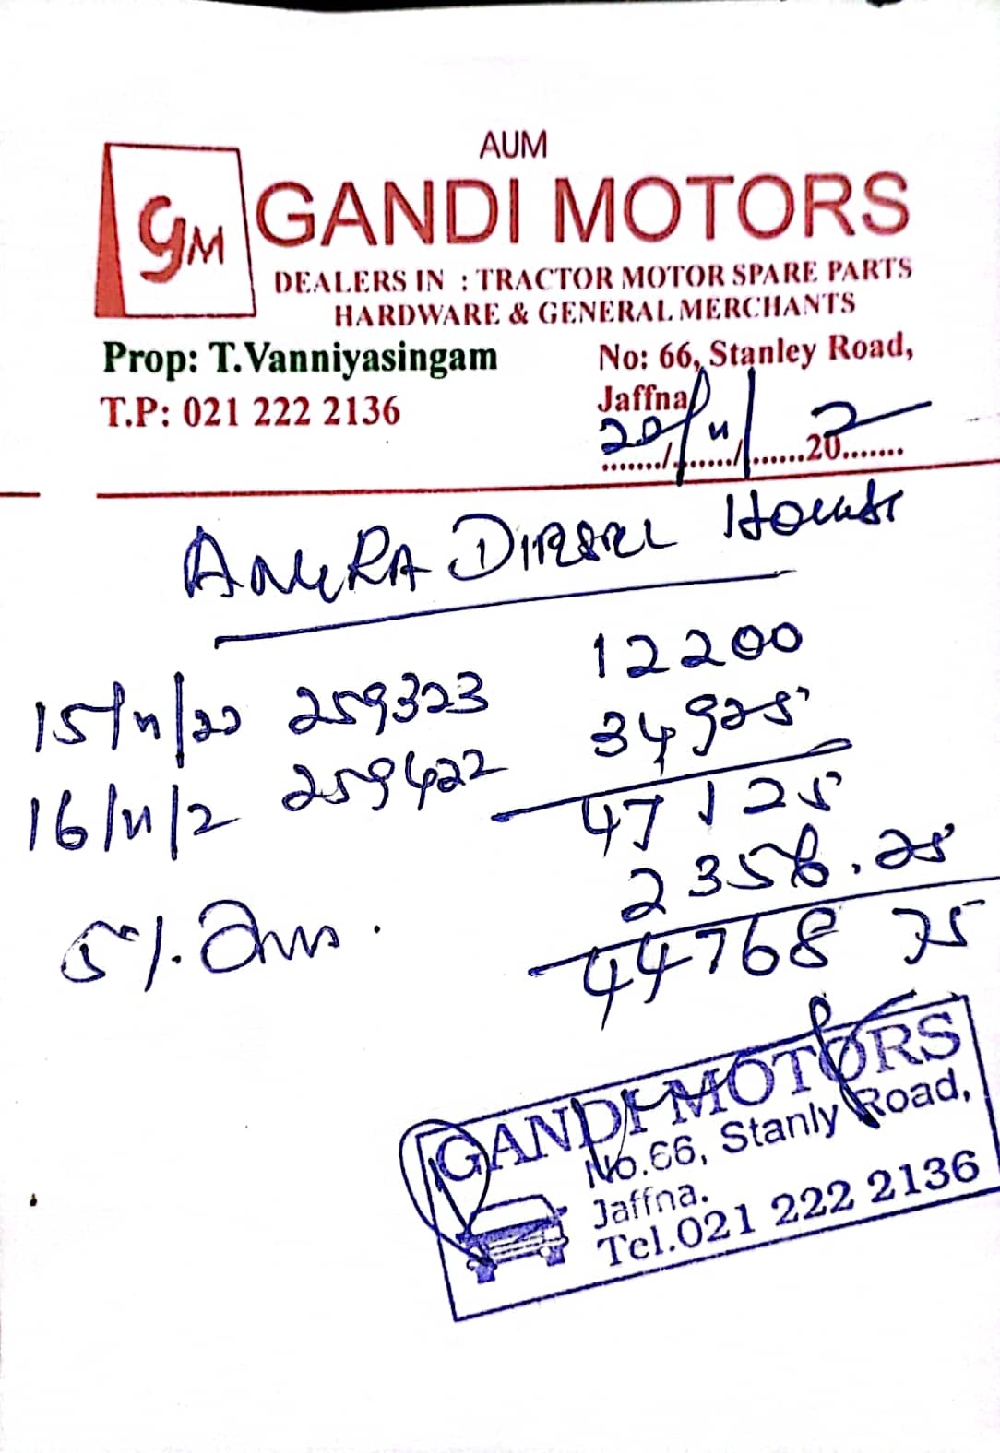 AUM
GM
GANDI MOTORS
DEALERS IN : TRACTOR MOTOR SPARE PARTS
HARDWARE & GENERAL MERCHANTS
Prop: T.Vanniyasingam
No: 66, Stanley Road,
T.P: 021 222 2136
Jaffna
20/11/202
ANURA DIESEL House
15/11/22 259323 12200
16/11/2 259422 34925
47125
5%. 2356.25
44768 75
GANDI MOTORS
No.66, Stanly Road,
Jaffna.
Tel.021 222 2136